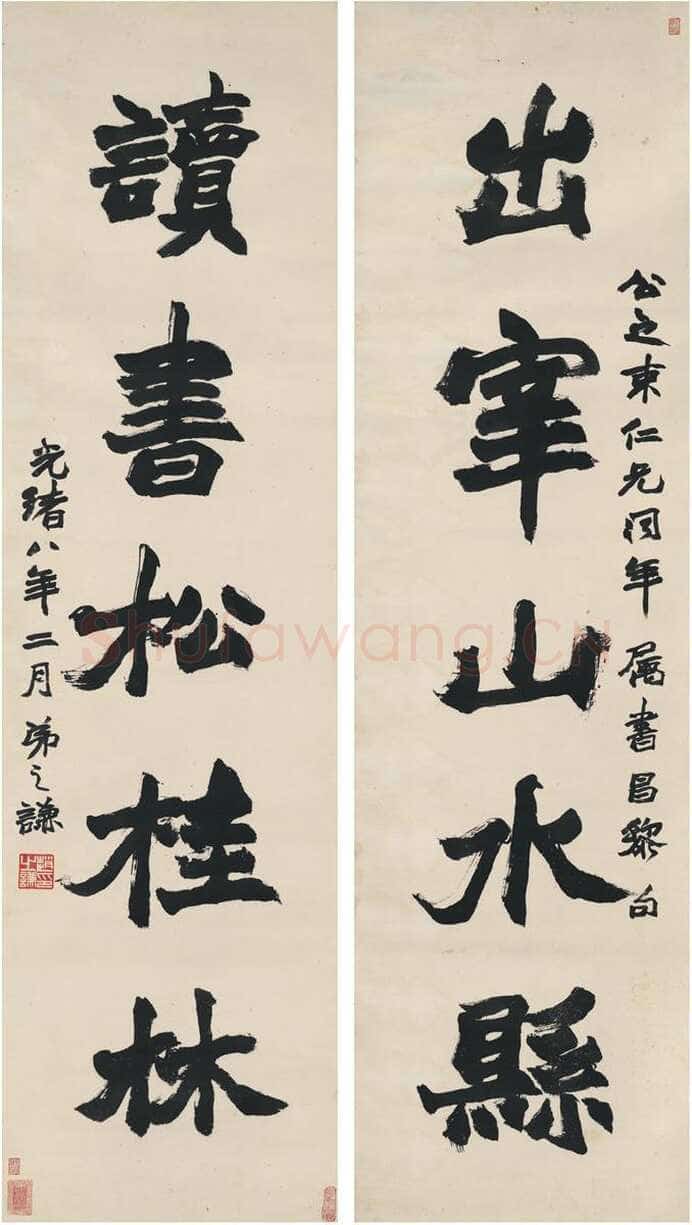 出宰山水縣
公之東仁兄同年属書昌黎句
讀書松桂林
光緒八年二月弟之謙
Shufawang.CN